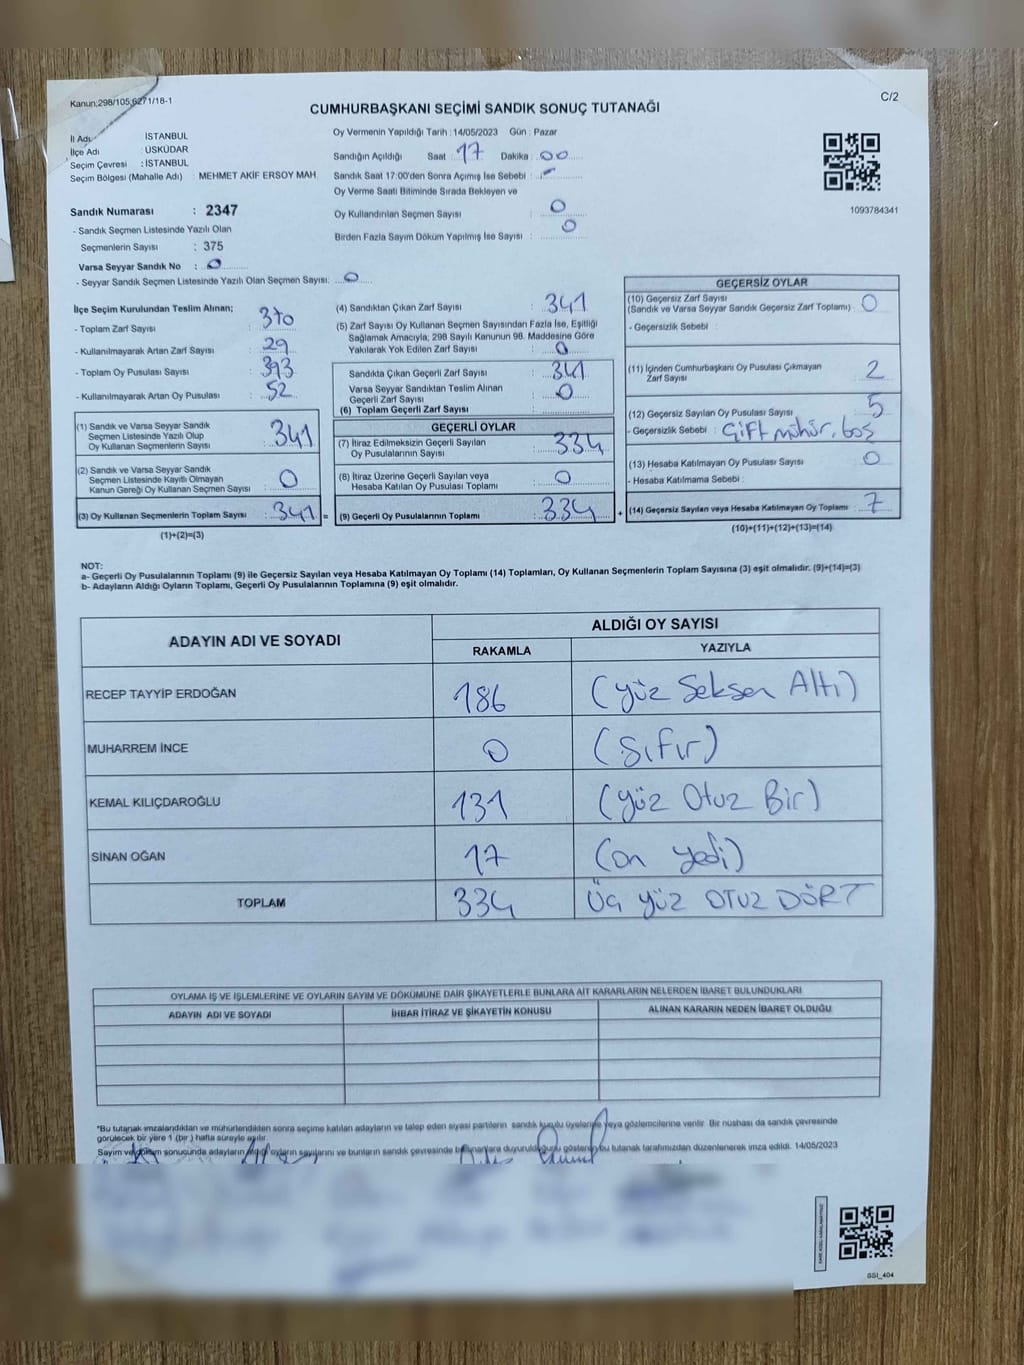 Kanun;298/105;6271/18-1
C/2
CUMHURBAŞKANI SEÇİMİ SANDIK SONUÇ TUTANAĞI
İl Adı : İSTANBUL
İlçe Adı : ÜSKÜDAR
Seçim Çevresi : İSTANBUL
Seçim Bölgesi (Mahalle Adı) : MEHMET AKİF ERSOY MAH.
Sandık Numarası : 2347
- Sandık Seçmen Listesinde Yazılı Olan
Seçmenlerin Sayısı : 375
Varsa Seyyar Sandık No : 0
- Seyyar Sandık Seçmen Listesinde Yazılı Olan Seçmen Sayısı: 0
Oy Vermenin Yapıldığı Tarih : 14/05/2023 Gün : Pazar
Sandığın Açıldığı Saat : 17 Dakika : 00
Sandık Saat 17:00'den Sonra Açımış İse Sebebi : -
Oy Verme Saati Bitiminde Sırada Bekleyen ve
Oy Kullandırılan Seçmen Sayısı : 0
Birden Fazla Sayım Döküm Yapılmış İse Sayısı : 0
1093784341
İlçe Seçim Kurulundan Teslim Alınan;
- Toplam Zarf Sayısı : 370
- Kullanılmayarak Artan Zarf Sayısı : 29
- Toplam Oy Pusulası Sayısı : 393
- Kullanılmayarak Artan Oy Pusulası : 52
(1) Sandık ve Varsa Seyyar Sandık
Seçmen Listesinde Yazılı Olup
Oy Kullanan Seçmenlerin Sayısı : 341
(2) Sandık ve Varsa Seyyar Sandık
Seçmen Listesinde Kayıtlı Olmayan
Kanun Gereği Oy Kullanan Seçmen Sayısı : 0
(3) Oy Kullanan Seçmenlerin Toplam Sayısı : 341 =
(1)+(2)=(3)
(4) Sandıktan Çıkan Zarf Sayısı : 341
(5) Zarf Sayısı Oy Kullanan Seçmen Sayısından Fazla İse, Eşitliği
Sağlamak Amacıyla; 298 Sayılı Kanunun 98. Maddesine Göre
Yakılarak Yok Edilen Zarf Sayısı : 0
Sandıkta Çıkan Geçerli Zarf Sayısı : 341
Varsa Seyyar Sandıktan Teslim Alınan
Geçerli Zarf Sayısı : 0
(6) Toplam Geçerli Zarf Sayısı :
GEÇERLİ OYLAR
(7) İtiraz Edilmeksizin Geçerli Sayılan
Oy Pusulalarının Sayısı : 334
(8) İtiraz Üzerine Geçerli Sayılan veya
Hesaba Katılan Oy Pusulası Toplamı : 0
(9) Geçerli Oy Pusulalarının Toplamı : 334 +
GEÇERSİZ OYLAR
(10) Geçersiz Zarf Sayısı
(Sandık ve Varsa Seyyar Sandık Geçersiz Zarf Toplamı) : 0
- Geçersizlik Sebebi :
(11) İçinden Cumhurbaşkanı Oy Pusulası Çıkmayan
Zarf Sayısı : 2
(12) Geçersiz Sayılan Oy Pusulası Sayısı : 5
- Geçersizlik Sebebi : Çift mühür, boş
(13) Hesaba Katılmayan Oy Pusulası Sayısı : 0
- Hesaba Katılmama Sebebi :
(14) Geçersiz Sayılan veya Hesaba Katılmayan Oy Toplamı : 7
(10)+(11)+(12)+(13)=(14)
NOT:
a- Geçerli Oy Pusulalarının Toplamı (9) ile Geçersiz Sayılan veya Hesaba Katılmayan Oy Toplamı (14) Toplamları, Oy Kullanan Seçmenlerin Toplam Sayısına (3) eşit olmalıdır. (9)+(14)=(3)
b- Adayların Aldığı Oyların Toplamı, Geçerli Oy Pusulalarının Toplamına (9) eşit olmalıdır.
ADAYIN ADI VE SOYADI
ALDIĞI OY SAYISI
RAKAMLA YAZIYLA
RECEP TAYYİP ERDOĞAN 186 (yüz Seksen Altı)
MUHARREM İNCE 0 (Sıfır)
KEMAL KILIÇDAROĞLU 131 (yüz Otuz Bir)
SİNAN OĞAN 17 (on yedi)
TOPLAM 334 Üç yüz OTUZ DÖRT
OYLAMA İŞ VE İŞLEMLERİNE VE OYLARIN SAYIM VE DÖKÜMÜNE DAİR ŞİKAYETLERLE BUNLARA AİT KARARLARIN NELERDEN İBARET BULUNDUKLARI
ADAYIN ADI VE SOYADI İHBAR İTİRAZ VE ŞİKAYETİN KONUSU ALINAN KARARIN NEDEN İBARET OLDUĞU
*Bu tutanak imzalandıktan ve mühürlendikten sonra seçime katılan adayların ve talep eden siyasi partilerin sandık kurulu üyelerine veya gözlemcilerine verilir. Bir nüshası da sandık çevresinde
görülecek bir yere 1 (bir) hafta süreyle asılır.
Sayım ve döküm sonucunda adayların aldığı oyların sayılarını ve bunların sandık çevresinde bulunanlara duyurulduğunu gösteren bu tutanak tarafımızdan düzenlenerek imza edildi. 14/05/2023
GSI_404